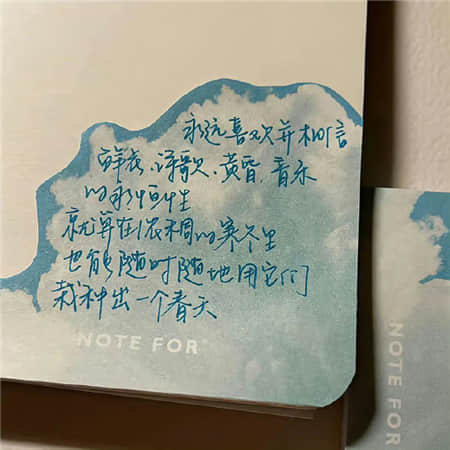 永远喜欢并相信
鲜花.诗歌.黄昏.音乐
的永恒性
就算在浓稠的寒冬里
也能随时随地用它们
栽种出一个春天
NOTE FOR
NOTE FOR